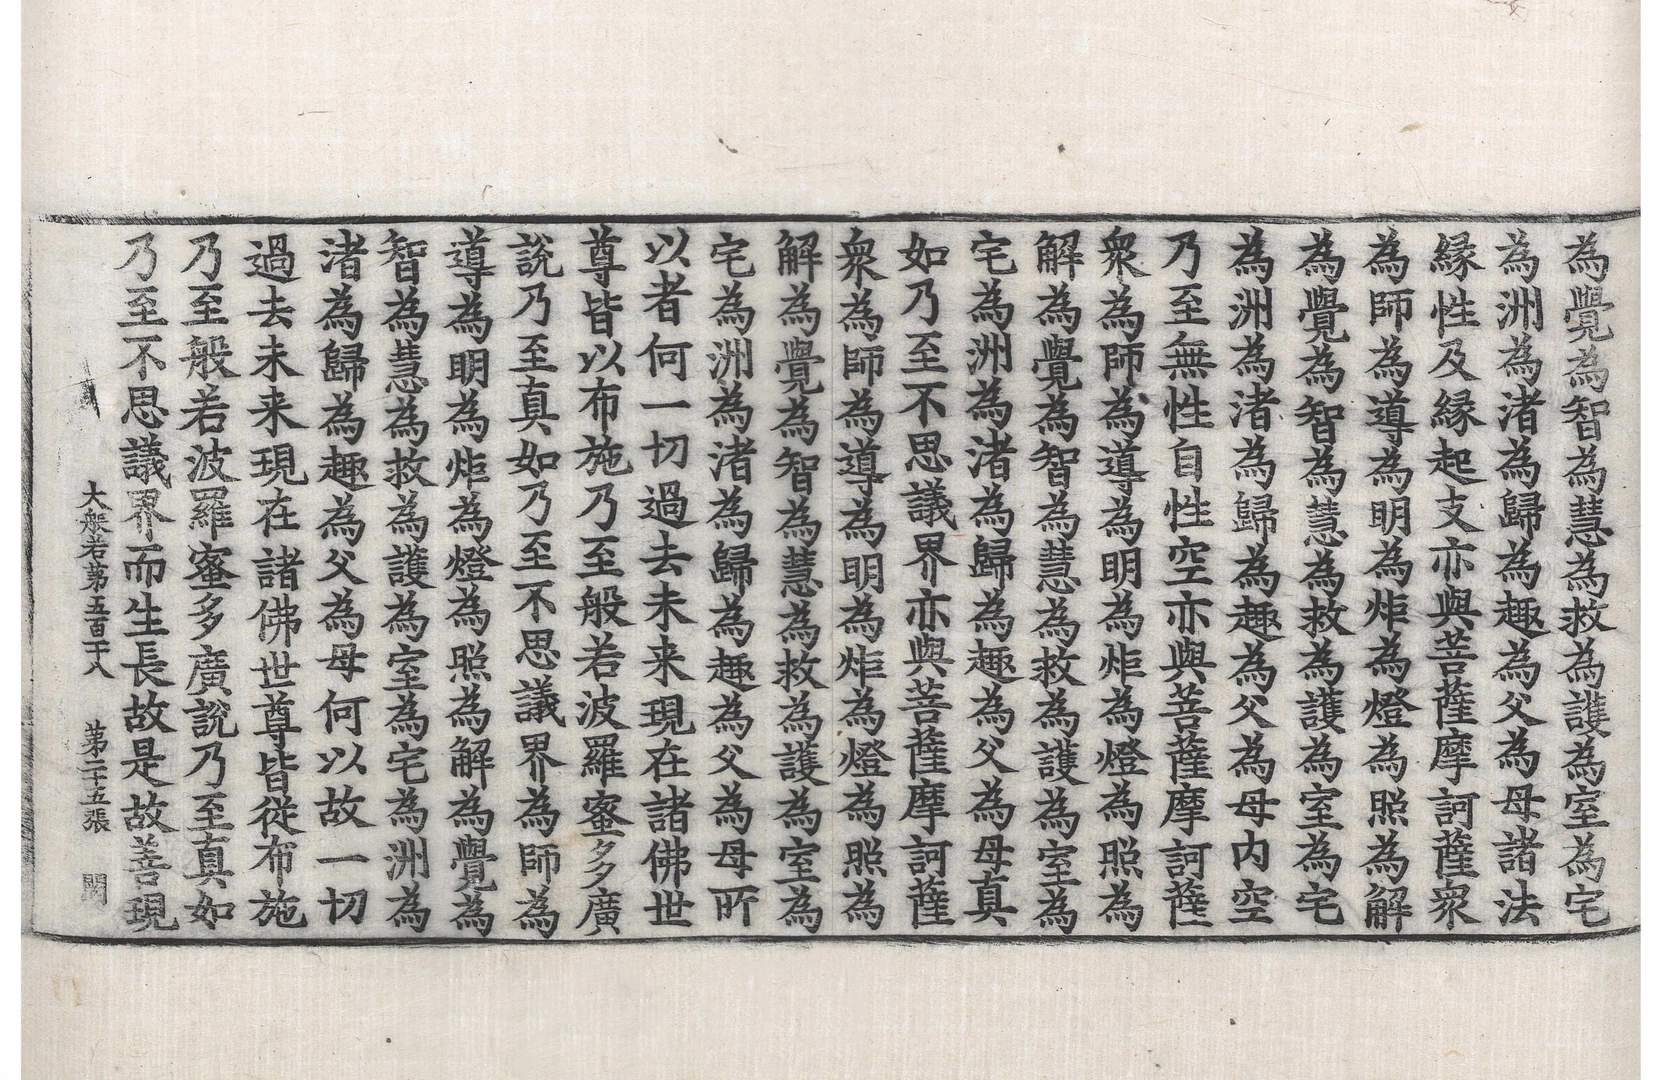 為覺為智為慧為救為護為室為宅
為洲為渚為歸為趣為父為母諸法
縁性及縁起支亦與菩薩摩訶薩衆
為師為導為明為炬為燈為照為解
為覺為智為慧為救為護為室為宅
為洲為渚為歸為趣為父為母内空
乃至無性自性空亦與菩薩摩訶薩
衆為師為導為明為炬為燈為照為
解為覺為智為慧為救為護為室為
宅為洲為渚為歸為趣為父為母真
如乃至不思議界亦與菩薩摩訶薩
衆為師為導為明為炬為燈為照為
解為覺為智為慧為救為護為室為
宅為洲為渚為歸為趣為父為母所
以者何一切過去未来現在諸佛世
尊皆以布施乃至般若波羅蜜多廣
說乃至真如乃至不思議界為師為
導為明為炬為燈為照為解為覺為
智為慧為救為護為室為宅為洲為
渚為歸為趣為父為母何以故一切
過去未来現在諸佛世尊皆從布施
乃至般若波羅蜜多廣說乃至真如
乃至不思議界而生長故是故善現
大般若第五百一十八 第二十五張 闕